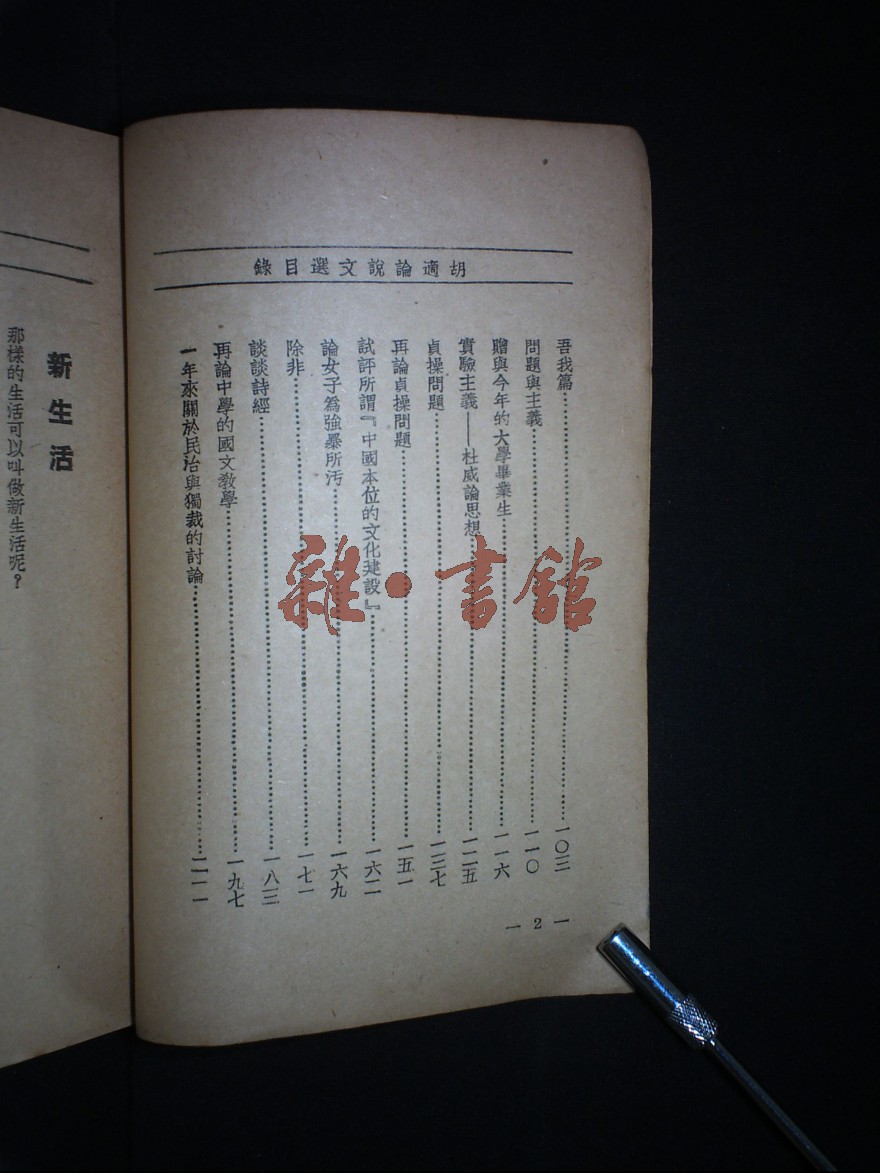 胡適論說文選目錄
吾我篇……一〇三
問題與主義……一一〇
贈與今年的大學畢業生……一一六
實驗主義——杜威論思想……一二五
貞操問題……一三七
再論貞操問題……一五一
試評所謂『中國本位的文化建設』……一六二
論女子為強暴所汚……一六九
除非……一七一
談談詩經……一八三
再論中學的國文教學……一九七
一年來關於民治與獨裁的討論……二一一
— 2 —
新生活
那樣的生活可以叫做新生活呢？
雜·書館